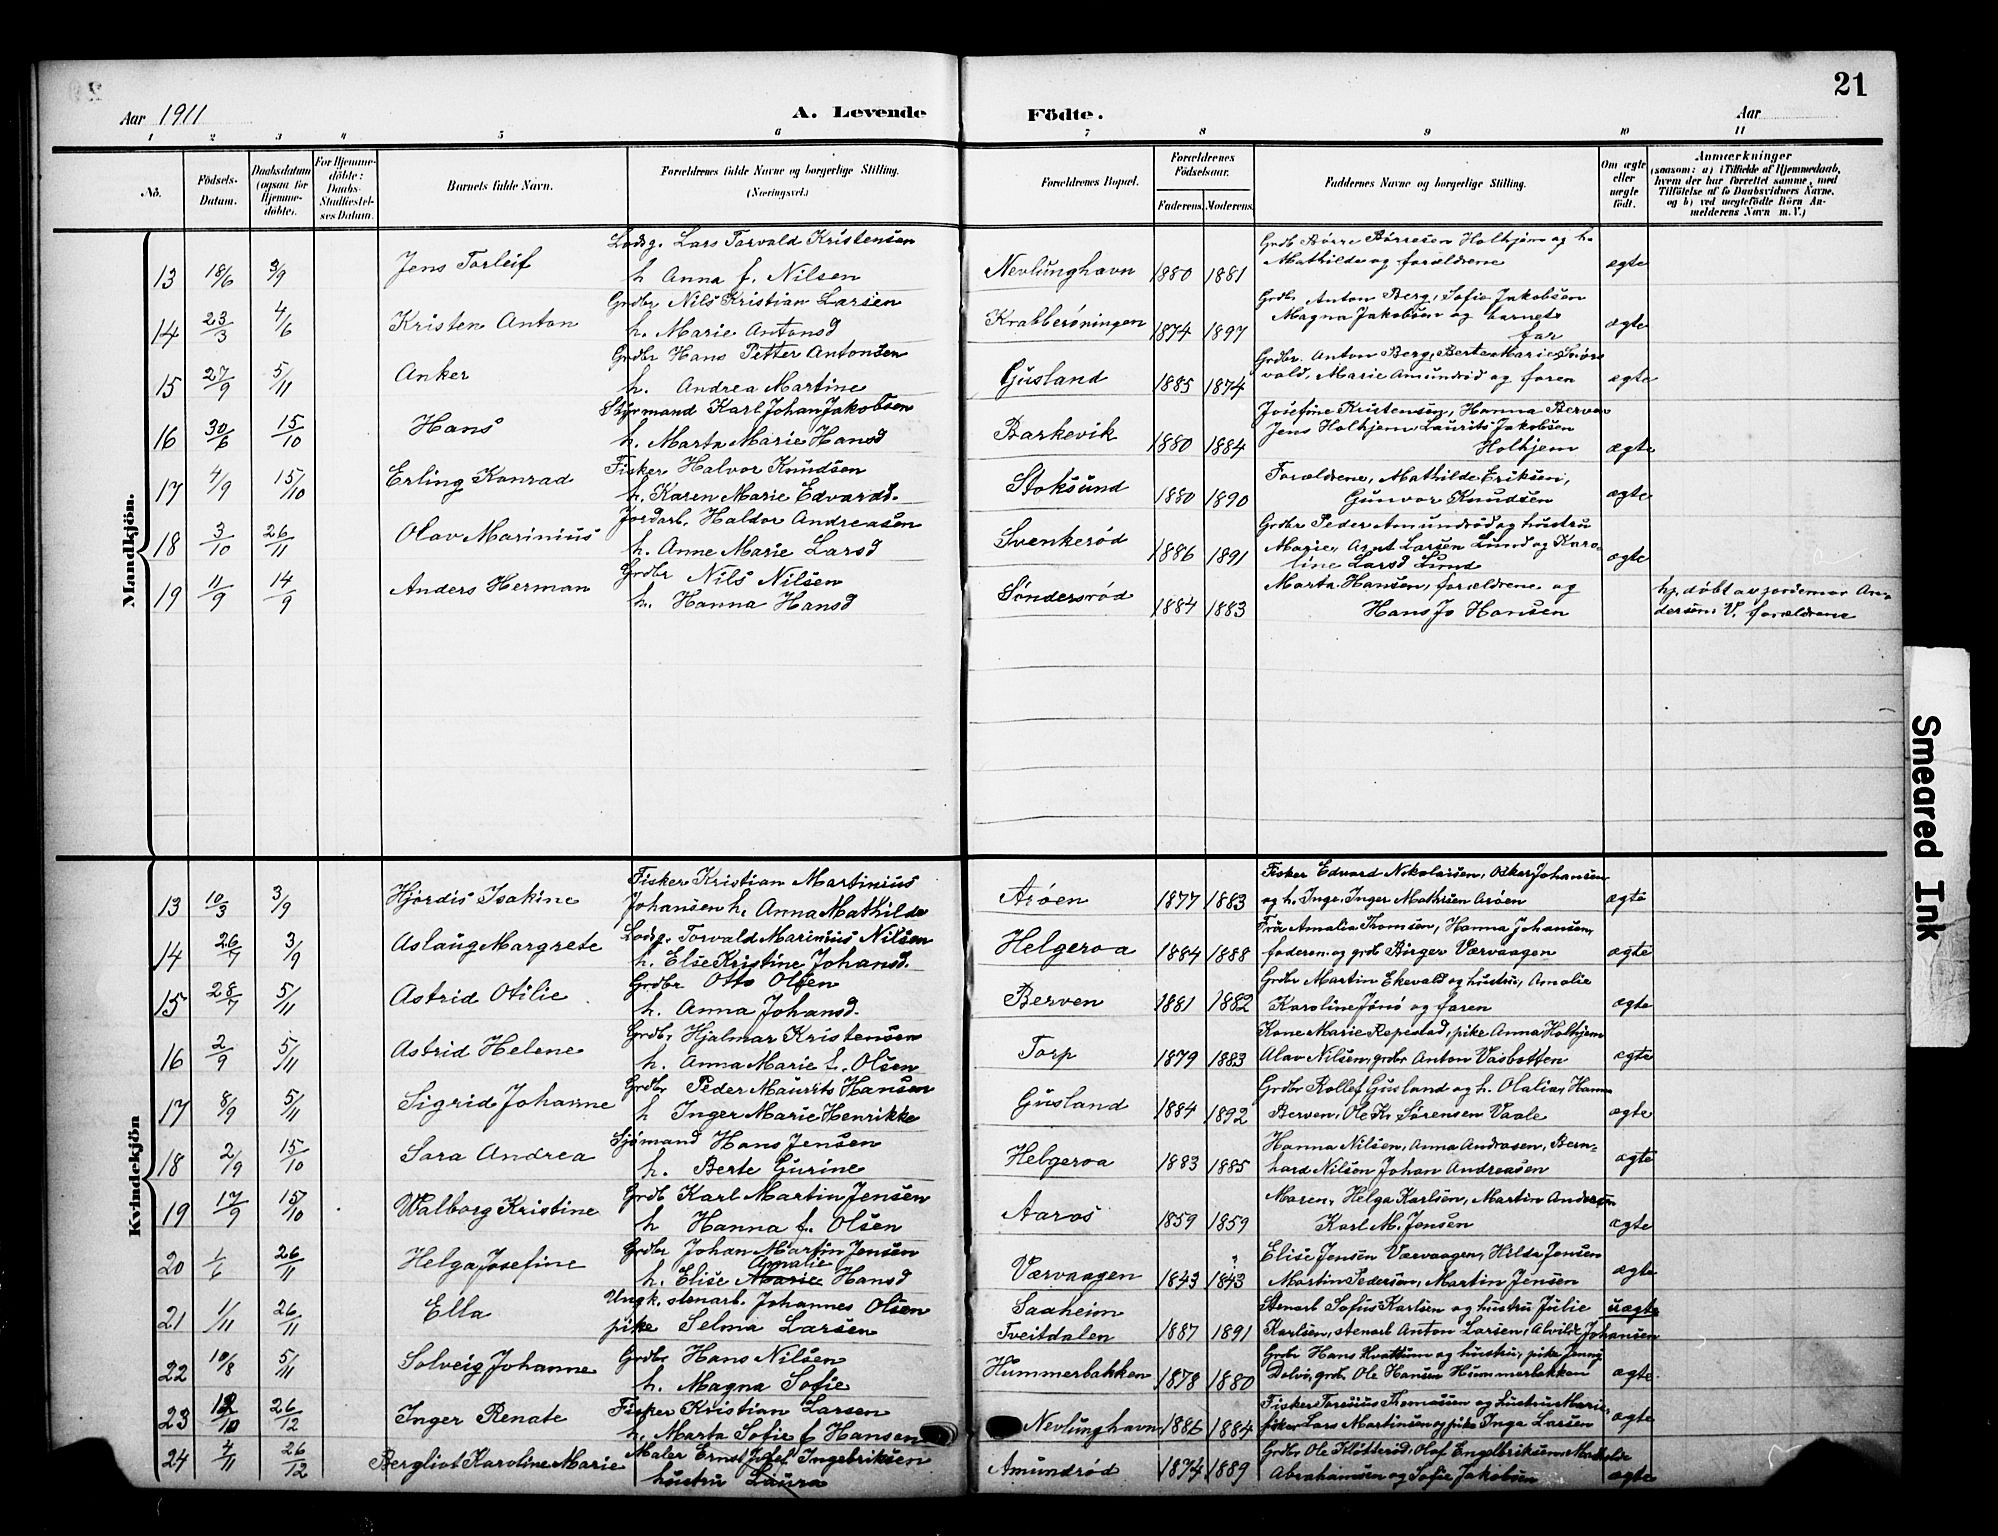 21
Aar 1911
A. Levende Födte.
Aar
1 2 3 4 5 6 7 8 9 10 11
No.
Födsels-Datum.
Daabsdatum (ogsaa for Hjemme-döbte).
For Hjemme-döbte: Daabs-Stadfæstel-ses Datum.
Barnets fulde Navn.
Forældrenes fulde Navne og borgerlige Stilling. (Næringsvei.)
Forældrenes Bopæl.
Forældrenes Födselsaar.
Faderens. Moderens.
Faddernes Navne og borgerlige Stilling.
Om ægte eller uægte födt.
Anmærkninger
(saasom: a) i Tilfælde af Hjemmedaab, hvem der har forrettet samme, med Tilföielse af to Daabsvidners Navne, og b) ved uægtefödte Börn An-melderens Navn m. V.)
Mandkjön.
Lodsg. Lars Torvald Kristensen
13 18/6 3/9 Jens Torleif h Anna f. Nilsen Nevlunghavn 1880 1881 Grdb Børre Børresen Holhjem og h. Mathilde og forældrene ægte
Grdbr Nils Kristian Larsen
14 23/3 4/6 Kristen Anton h. Marie Antonsd Krabberøningen 1874 1897 Grdbr Anton Berg, Sofie Jakobsen Magna Jakobsen og barnets far ægte
Grdbr Hans Petter Antonsen
15 27/9 5/11 Anker h. Andrea Martine Gusland 1885 1874 Grdbr. Anton Berg, Berte Marie vold, Marie Amundrød og faren ægte
Styrmand Karl Johan Jakobsen
16 30/6 15/10 Hans h. Marta Marie Hansd Barkevik 1880 1884 Josefine Kristensen, Hanna Berven Jens Holhjem, Laurits Jakobsen Holhjem ægte
Fisker Halvor Knudsen
17 4/9 15/10 Erling Konrad h. Karen Marie Edvards. Stoksund 1880 1890 Forældrene, Mathilde Eriksen, Gunvor Knudsen ægte
Jordarb. Haldor Andreasen
18 3/10 26/11 Olav Marinius h. Anne Marie Larsd Svenkerød 1886 1891 Grdbr Peder Amundrød og hustru Marie, Arnt Larsen Lund og Karo-line Larsd Lund ægte
Grdbr Nils Nilsen
19 11/9 14/9 Anders Herman h. Hanna Hansd Søndersrød 1884 1883 Marta Hansen, forældrene og Hans Jo Hansen hj. døbt av jordemor An-dersen. V. forældrene
Kvindekjön
Fisker Kristian Martinius
13 10/3 3/9 Hjørdis Isakine Johansen h. Anna Mathilde Arøen 1877 1883 Fisker Edvard Nikolaisen, Oskar Johansen og h. Inge. Inger Mathisen Arøen ægte
Lodsg. Torvald Marinius Nilsen
14 26/7 3/9 Aslaug Margrete h. Else Kristine Johansd. Helgeroa 1884 1888 Fru Amalia Thomsen, Hanna Johansen, faderen og grdb Birger Værvaagen ægte
Grdbr Otto Olsen
15 28/7 5/11 Astrid Otilie h. Anna Johansd. Berven 1881 1882 Grdbr Martin Ekevald og hustru, Amalie Karoline Jønø og faren ægte
Grdbr, Hjalmar Kristensen
16 2/9 5/11 Astrid Helene h. Anna Marie f. Olsen Torp 1879 1883 Kone Marie Repestad, pike Anna Holhjem Alav Nilsen, grdbr Anton Vasbotten ægte
Grdbr Peder Maurits Hansen
17 8/9 5/11 Sigrid Johanne h Inger Marie Henrikke Gusland 1884 1892 Grdbr Rollef Gusland og h. Olalia, Hanna Berven, Ole Kr Sørensen Vaale ægte
Sjømand Hans Jensen
18 2/9 15/10 Sara Andrea h. Berte Gurine Helgeroa 1883 1885 Hanna Nilsen, Anna Andrasen, Bern-hard Nilsen Johan Andreasen ægte
Grdb Karl Martin Jensen
19 17/9 15/10 Walborg Kristine h Hanna f. Olsen Aaros 1859 1859 Maren, Helga Karlsen, Martin Andersen Karl M. Jensen ægte
Grdbr Johan Martin Jensen
20 1/6 26/11 Helga Josefine h. Elise Marie Amalie Hansd Værvaagen 1843 1843 ? Elise Jensen Værvaagen, Hilda Jensen Martin Pedersen, Martin Jensen ægte
Ungk. stenarb. Johannes Olsen Saaheim
21 1/11 26/11 Ella pike Selma Larsen Tveitdalen 1887 1891 Stenarb Sofus Karlsen og hustru Julie Karlsen, stenarb Anton Larsen, Alvilde Johansen uægte
Grdbr Hans Nilsen
22 10/8 5/11 Solveig Johanne h. Magna Sofie Hummerbakken 1878 1880 Grdbr Hans Kvattum og hustru, pike Jenny Dolvø, grdb. Ole Hansen Hummerbakken ægte
Fisker Kristian Larsen
23 12/10 26/12 Inger Renate h. Marta Sofie f Hansen Nevlunghavn 1886 1884 Fisker Torsius Thomassen og hustru Marie, fisker Lars Martinsen og pike Inga Larsen ægte
Maler Ernst Josef Ingebriksen
24 4/11 26/12 Bergliot Karoline Marie hustru Laura Amundrød 1874 1889 Grdbr Ole Klotterød, Olaf Engelbriksen, Mathilde Abrahamsen og Sofie Jakobsen ægte
Smeared Ink